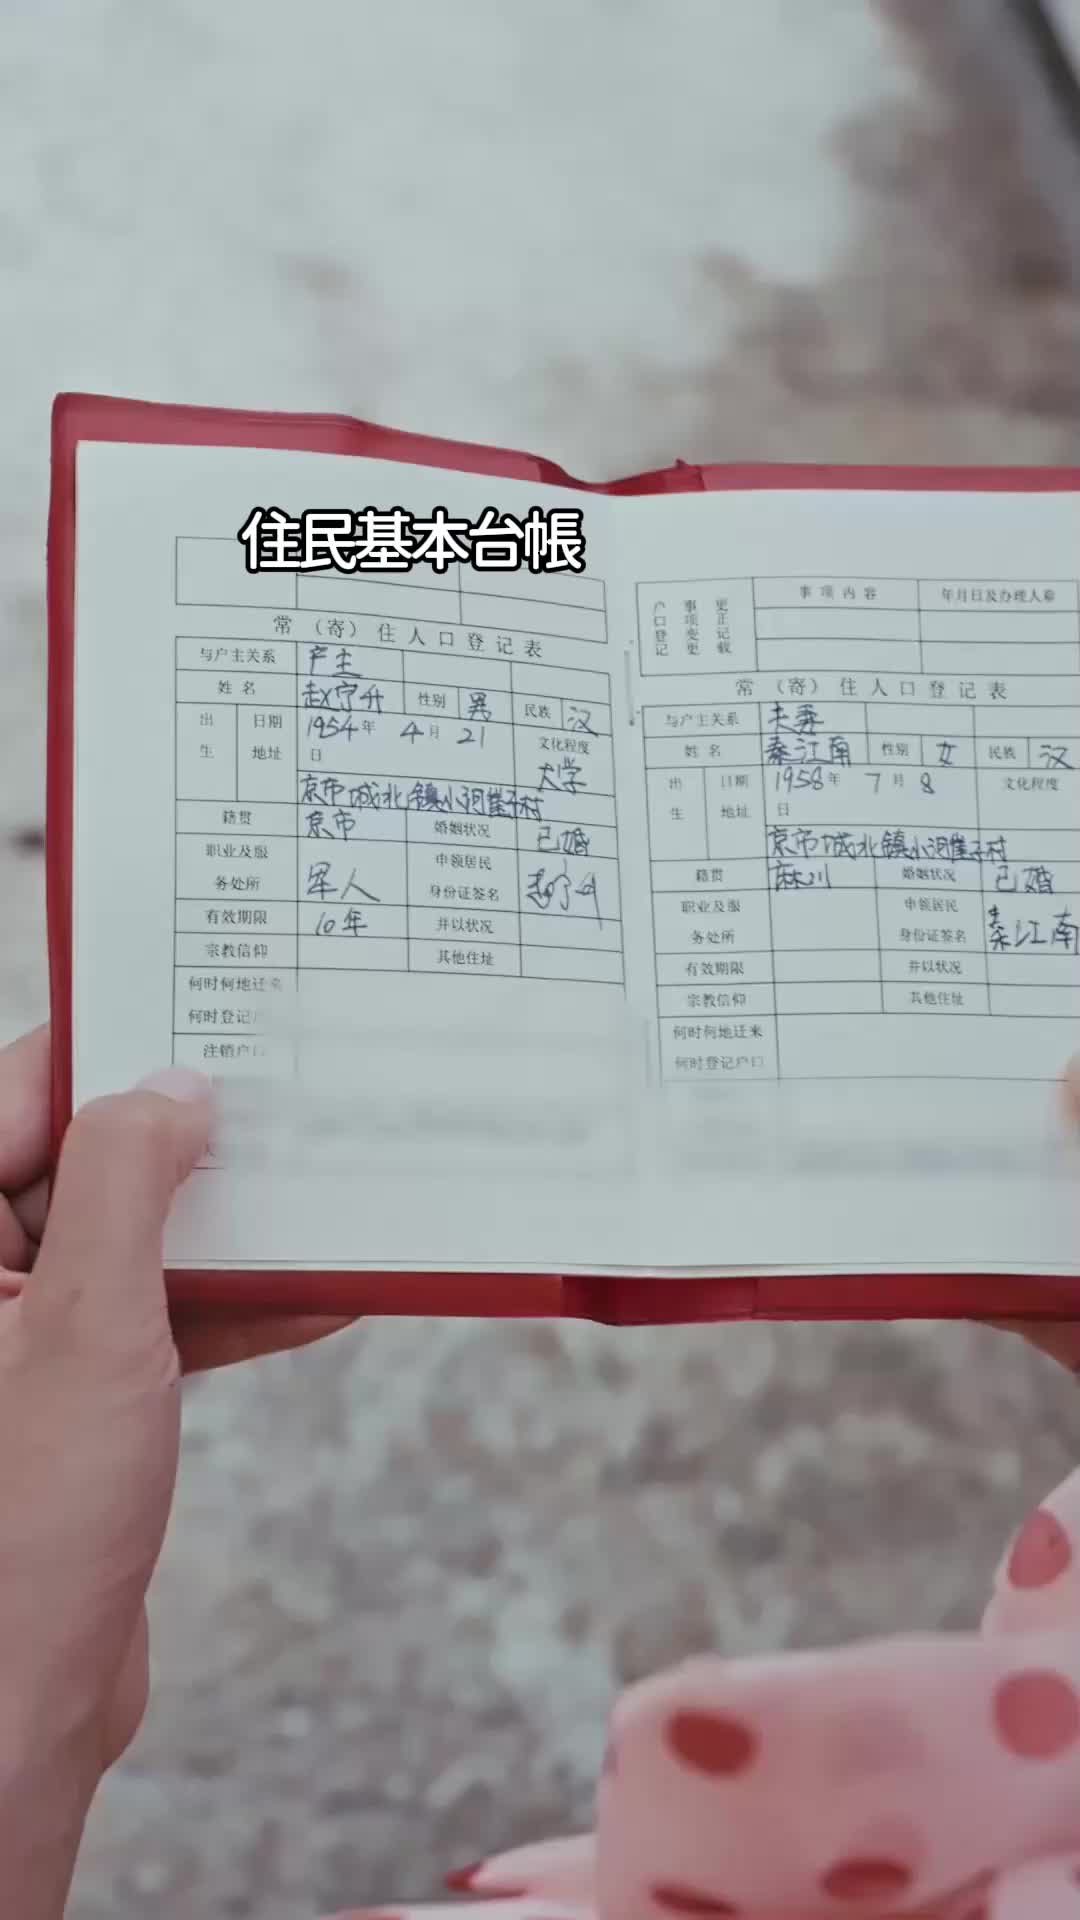 住民基本台帳
常（寄）住人口登记表
与户主关系 户主
姓名 赵宁升 性别 男 民族 汉
出生 日期 1954年 4月 21日 文化程度 大学
地址 京市城北镇小河崖子村
籍贯 京市 婚姻状况 已婚
职业及服务处所 军人 申领居民身份证签名 赵宁升
有效期限 10年 并以状况
宗教信仰 其他住址
何时何地迁来
何时登记户
注销户口
户口登记 事项变更 更正记载 事项内容 年月日及办理人章
常（寄）住人口登记表
与户主关系 夫妻
姓名 秦江南 性别 女 民族 汉
出生 日期 1958年 7月 8日 文化程度
地址 京市城北镇小河崖子村
籍贯 麻川 婚姻状况 已婚
职业及服务处所 申领居民身份证签名 秦江南
有效期限 并以状况
宗教信仰 其他住址
何时何地迁来
何时登记户口